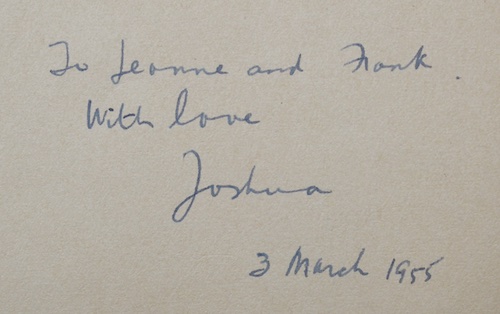 To Jeanne and Frank.
With love
Joshua
3 March 1955